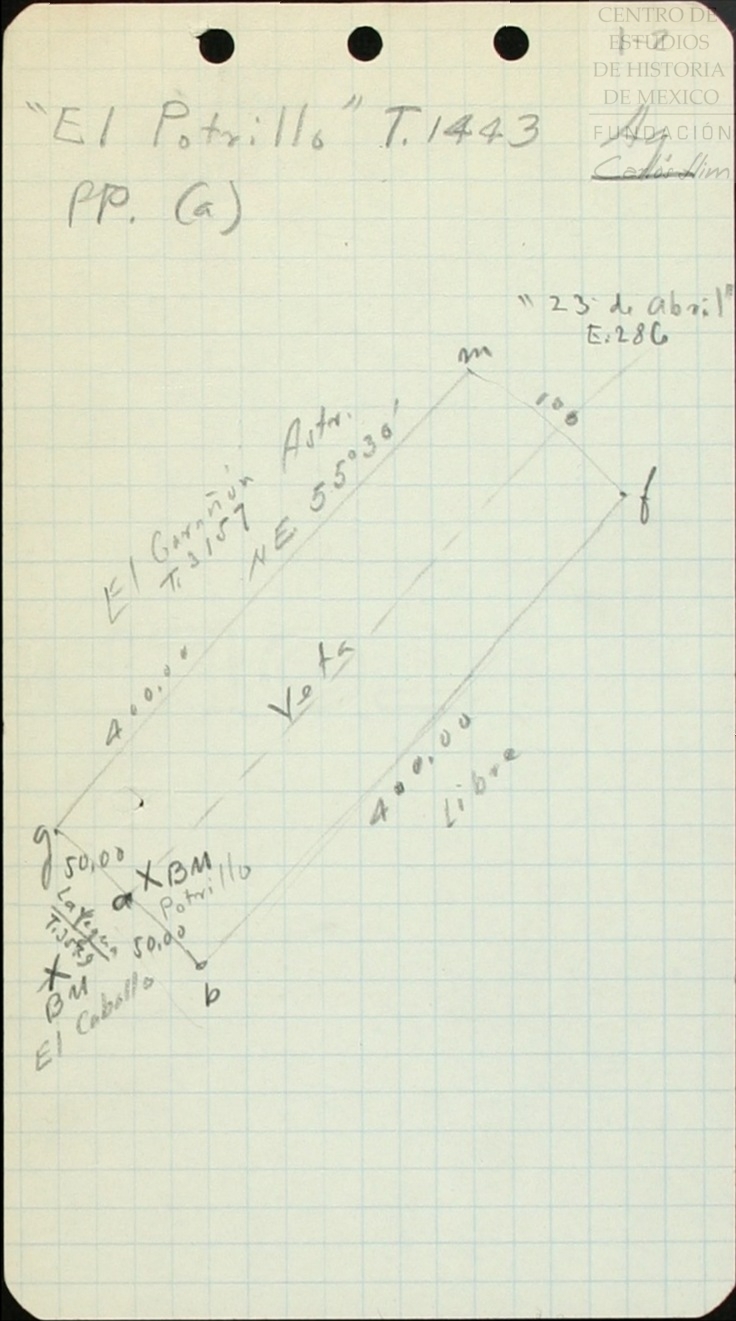 CENTRO DE
ESTUDIOS
DE HISTORIA
DE MEXICO
FUNDACIÓN
Carlos Slim
"El Potrillo" T.1443
Ag
PP. (a)
"23 de abril"
E.286
m
100
f
El Garañón
T.3157
Astr.
NE 55°30'
400.00
Veta
400.00
Libre
g
50.00
a
X BM
Potrillo
La Yegua
T.3549
50.00
X
BM
El Caballo
b